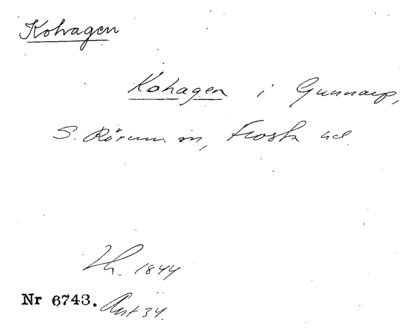 Kohagen
Kohagen i Gunnarp,
S. Rörum sn, Frosta hd.
Lh. 1844
Nr 6743. Ant 34.